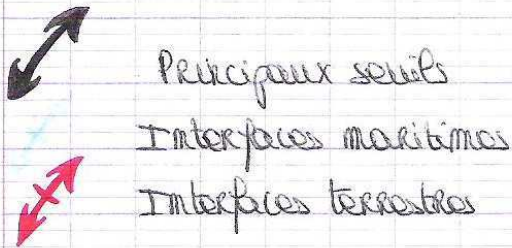 Principaux seuils
Interfaces maritimes
Interfaces terrestres